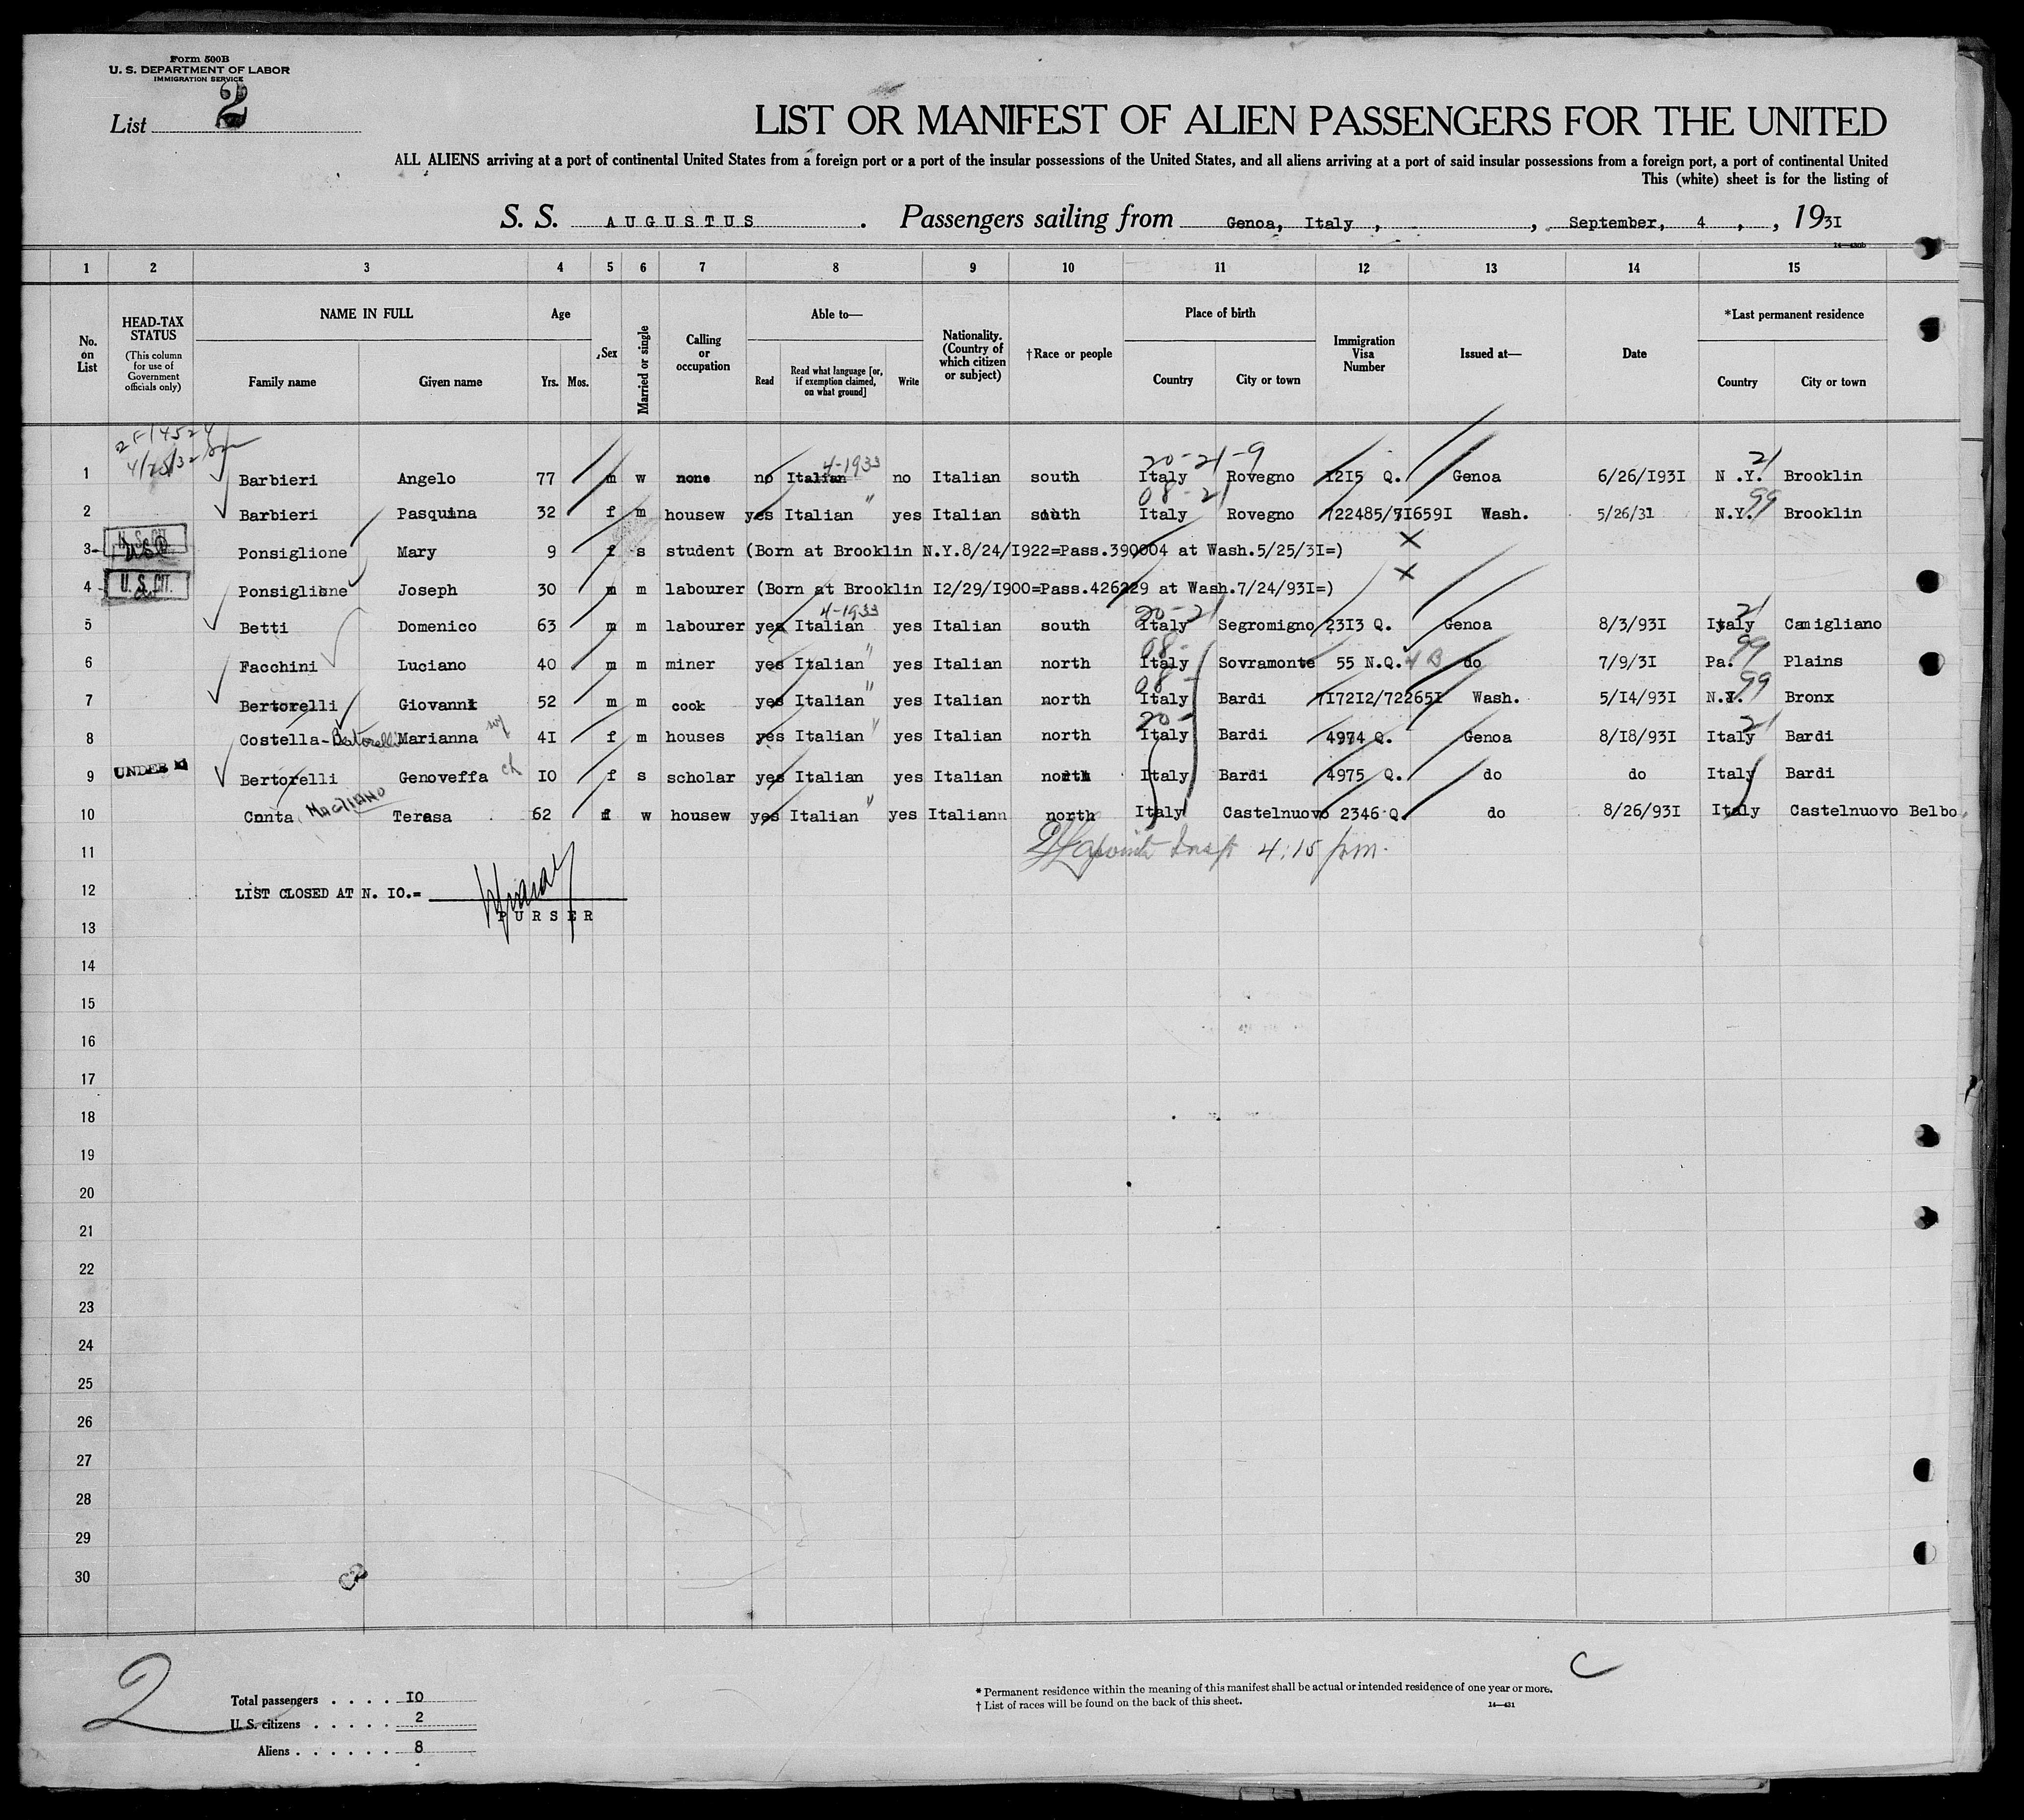 Form 500B
U. S. DEPARTMENT OF LABOR
IMMIGRATION SERVICE
List 2
LIST OR MANIFEST OF ALIEN PASSENGERS FOR THE UNITED
ALL ALIENS arriving at a port of continental United States from a foreign port or a port of the insular possessions of the United States, and all aliens arriving at a port of said insular possessions from a foreign port, a port of continental United
This (white) sheet is for the listing of
S. S. AUGUSTUS . Passengers sailing from Genoa, Italy , , September, 4 , , 1931
14—430b
1 2 3 4 5 6 7 8 9 10 11 12 13 14 15
No. on List
HEAD-TAX STATUS (This column for use of Government officials only)
NAME IN FULL
Family name Given name
Age
Yrs. Mos.
Sex
Married or single
Calling or occupation
Able to—
Read Read what language [or, if exemption claimed, on what ground] Write
Nationality. (Country of which citizen or subject)
†Race or people
Place of birth
Country City or town
Immigration Visa Number
Issued at—
Date
*Last permanent residence
Country City or town
2F-14524
4/25/32
4-1933 20-21-9 21
1 Barbieri Angelo 77 m w none no Italian no Italian south Italy Rovegno 1215 Q. Genoa 6/26/1931 N .Y. Brooklin
08-21 99
2 Barbieri Pasquina 32 f m housew yes Italian " yes Italian south Italy Rovegno 722485/716591 Wash. 5/26/31 N.Y. Brooklin
3 Ponsiglione Mary 9 f s student (Born at Brooklin N.Y.8/24/1922=Pass.390004 at Wash.5/25/31=) X
4 U. S. CIT. Ponsiglione Joseph 30 m m labourer (Born at Brooklin 12/29/1900=Pass.426229 at Wash.7/24/931=) X
4-1933 20-21 21
5 Betti Domenico 63 m m labourer yes Italian yes Italian south Italy Segromigno 2313 Q. Genoa 8/3/931 Italy Camigliano
08- 99
6 Facchini Luciano 40 m m miner yes Italian " yes Italian north Italy Sovramonte 55 N.Q. 4 B do 7/9/31 Pa. Plains
08- 99
7 Bertorelli Giovanni 52 m m cook yes Italian " yes Italian north Italy Bardi 717212/722651 Wash. 5/14/931 N.Y. Bronx
20- 21
8 Costella-Bertorelli Marianna wf 41 f m houses yes Italian " yes Italian north Italy Bardi 4974 Q. Genoa 8/18/931 Italy Bardi
9 UNDER Bertorelli Genoveffa ch 10 f s scholar yes Italian yes Italian north Italy Bardi 4975 Q. do do Italy Bardi
10 Conta MAGLIANO Teresa 62 f w housew yes Italian " yes Italiann north Italy Castelnuovo 2346 Q. do 8/26/931 Italy Castelnuovo Belbo
11 Insp 4:15 pm.
12 LIST CLOSED AT N. 10.=
PURSER
13
14
15
16
17
18
19
20
21
22
23
24
25
26
27
28
29
30
2
C
Total passengers . . . . 10
U. S. citizens . . . . . 2
Aliens . . . . . . 8
* Permanent residence within the meaning of this manifest shall be actual or intended residence of one year or more.
† List of races will be found on the back of this sheet.
14—431